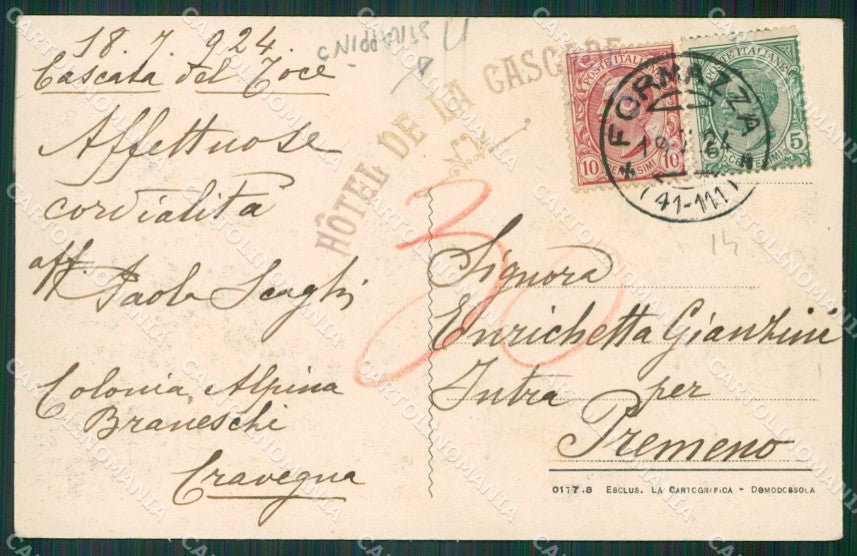 18. 7. 924.
Cascata del Toce
Affettuose
cordialità
aff.
Paola
Colonia Alpina
Cravegna
HÔTEL DE LA CASCADE
POSTE ITALIANE
10 10
POSTE ITALIANE
5
FORMAZZA
(41-111)
30
14
Signora
Enrichetta Gianzini
Intra per
Premeno
0117.8 ESCLUS. LA CARTOGRAFICA - DOMODOSSOLA
CARTOLINOMANIA